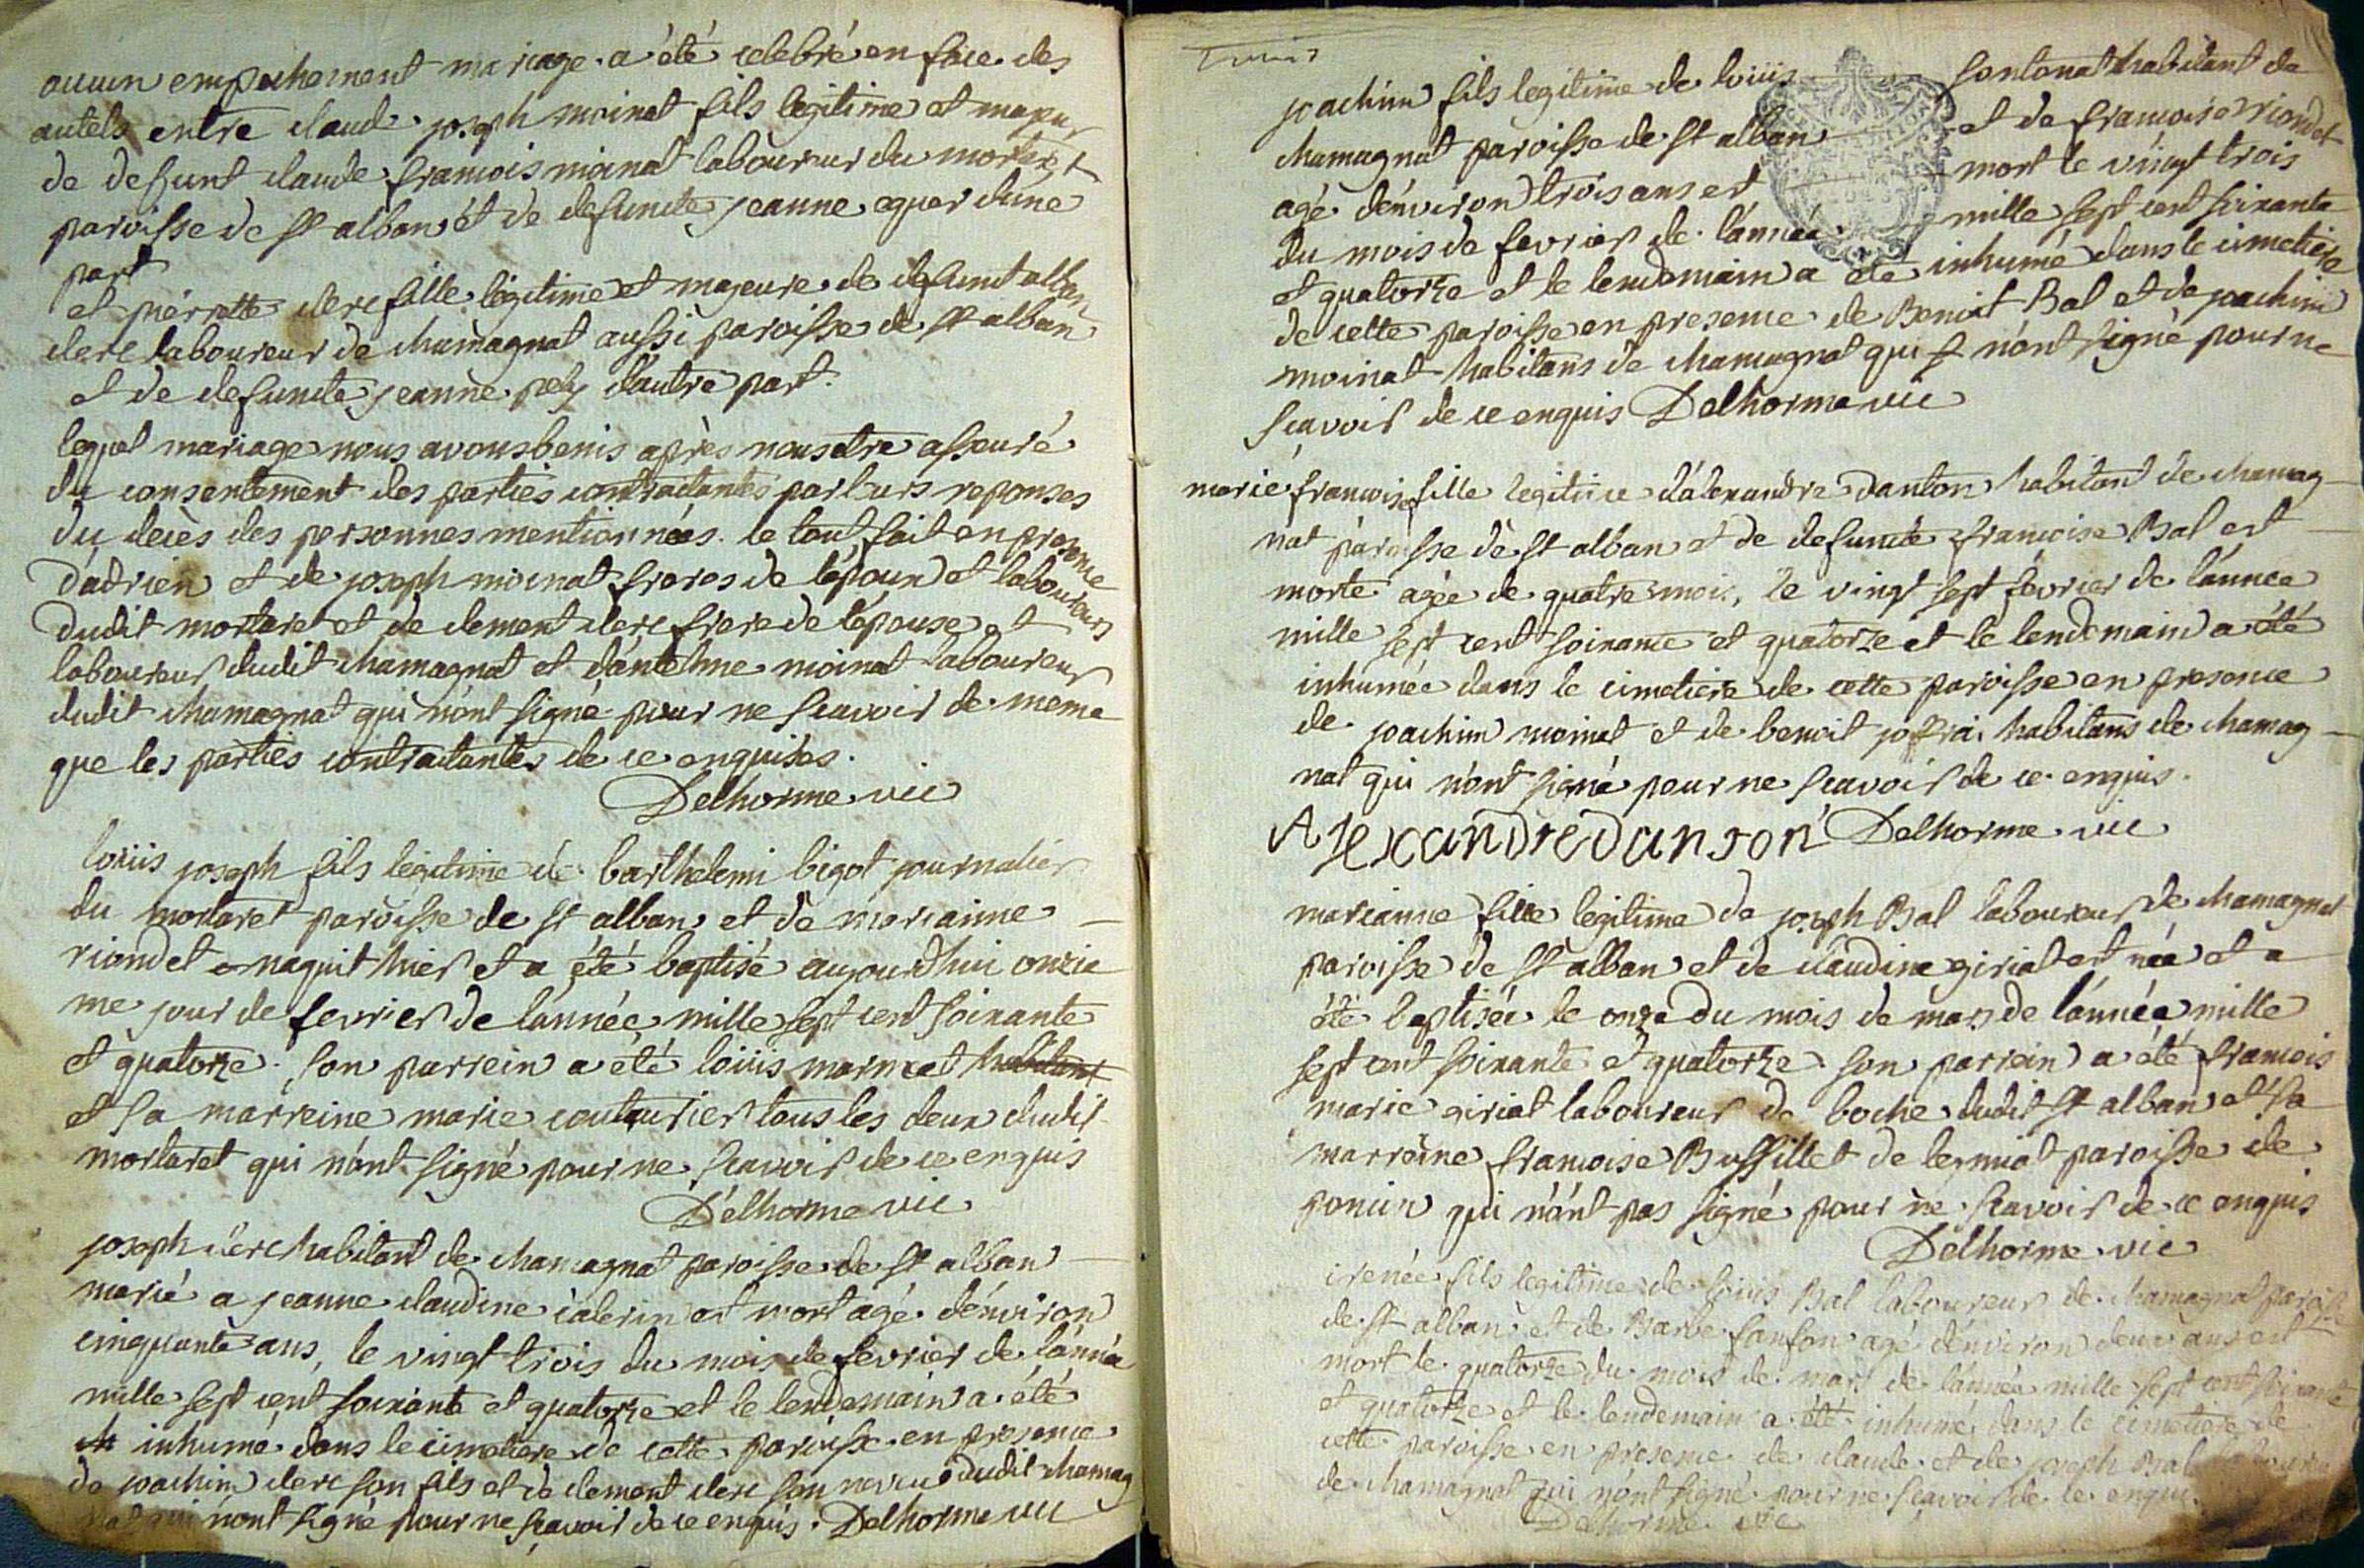 aucun empechement mariage a été celebré en face des
autels entre claude joseph moinat fils legitime et majeur
de defunt claude francois moinat laboureur du mortaret
paroisse de st alban et de defuncte jeanne d'une
part
et pierrette clerc fille legitime et majeure de defunt alban
clerc laboureur de chamagnat aussi paroisse de st alban
et de defuncte jeanne d'autre part.
lequel mariage nous avons benis après nous etre asseuré
du consentement des parties contractantes par leurs reponses
du decès des personnes mentionnées. le tout fait en presence
d'adrien et de joseph moinat freres de l'époux et laboureurs
dudit mortaret et de clement clerc frere de l'épouse et
laboureur dudit chamagnat et d'antelme moinat laboureur
dudit chamagnat qui n'ont signé pour ne scavoir de meme
que les parties contractantes de ce enquises.
Delhorme vic
loüis joseph fils legitime de barthelemi bigot journalier
du mortaret paroisse de st alban et de marianne
riondet naquit hier et a été baptisé aujourdhui onzie
me jour de fevrier de l'année mille sept cent soixante
et quatorze. son parrein a été loüis habitant
et sa marreine marie couturier tous les deux dudit
mortaret qui n'ont signé pour ne scavoir de ce enquis
Delhorme vic
joseph clerc habitant de chamagnat paroisse de st alban
marié a jeanne claudine est mort agé d'environ
cinquante ans, le vingt trois du mois de fevrier de l'année
mille sept cent soixante et quatorze et le lendemain a été
inhumé dans le cimetiere de cette paroisse en presence
de joachim clerc son fils et de clement clerc son neveu dudit chamag
nat qui n'ont signé pour ne scavoir de ce enquis. Delhorme vic
joachim fils legitime de loüis fontanat habitant de
chamagnat paroisse de st alban et de francoise riondet
agé d'environ trois ans est mort le vingt trois
du mois de fevrier de l'année mille sept cent soixante
et quatorze et le lendemain a été inhumé dans le cimetiere
de cette paroisse en presence de Benoit Bal et de joachim
moinat habitans de chamagnat qui n'ont signé pour ne
scavoir de ce enquis Delhorme vic
marie francoise fille legitime d'alexandre danton habitant de chamag
nat paroisse de st alban et de defuncte francoise Bal est
morte agée de quatre mois, le vingt sept fevrier de l'année
mille sept cent soixante et quatorze et le lendemain a été
inhumée dans le cimetiere de cette paroisse en presence
de joachim moinat et de benoit joffrai habitans de chamag
nat qui n'ont signé pour ne scavoir de ce enquis.
Alexandre danton Delhorme vic
marianne fille legitime de joseph Bal laboureur de chamagnat
paroisse de st alban et de claudine giriat est née et a
été baptisée le onze du mois de mars de l'année mille
sept cent soixante et quatorze son parrein a été francois
marie giriat laboureur de boche dudit st alban et sa
marreine francoise Bussillet de paroisse de
poncin qui n'ont pas signé pour ne scavoir de ce enquis
Delhorme vic
irenée fils legitime de loüis Bal laboureur de chamagnat paroisse
de st alban et de Barbe agé d'environ deux ans est
mort le quatorze du mois de mars de l'année mille sept cent soixante
et quatorze et le lendemain a été inhumé dans le cimetiere de
cette paroisse en presence de claude et de joseph Bal
de chamagnat qui n'ont signé pour ne scavoir de ce enquis
Delhorme vic